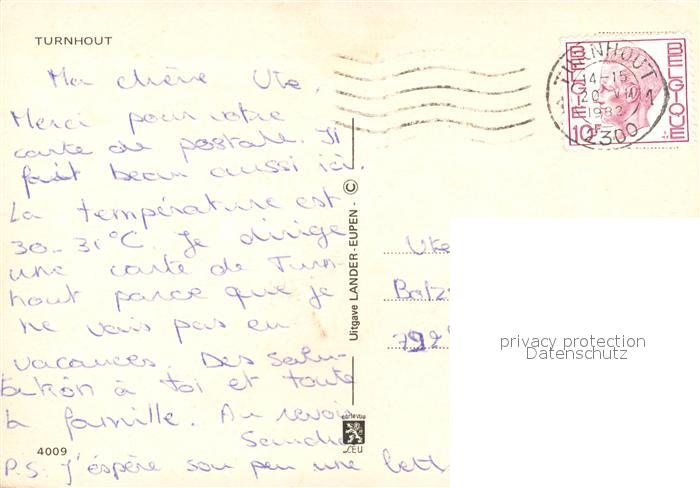 TURNHOUT
Ma chère Ute,
Merci pour votre
carte de postale. Il
fait beau aussi ici.
La température est
30-31°C. Je dirige
une carte de Turn-
hout parce que je
ne vais pas en
vacances. Des Salu-
takôn à toi et toute
la famille. Au revoir
Sandra
P.S. J'éspère son peu une lett
4009
Uitgave LANDER-EUPEN - ©
cartevue
LEU
TURNHOUT
14-15
20 VII
1982
2300
BELGIE
BELGIQUE
10F
Ute
Balz
792
privacy protection
Datenschutz